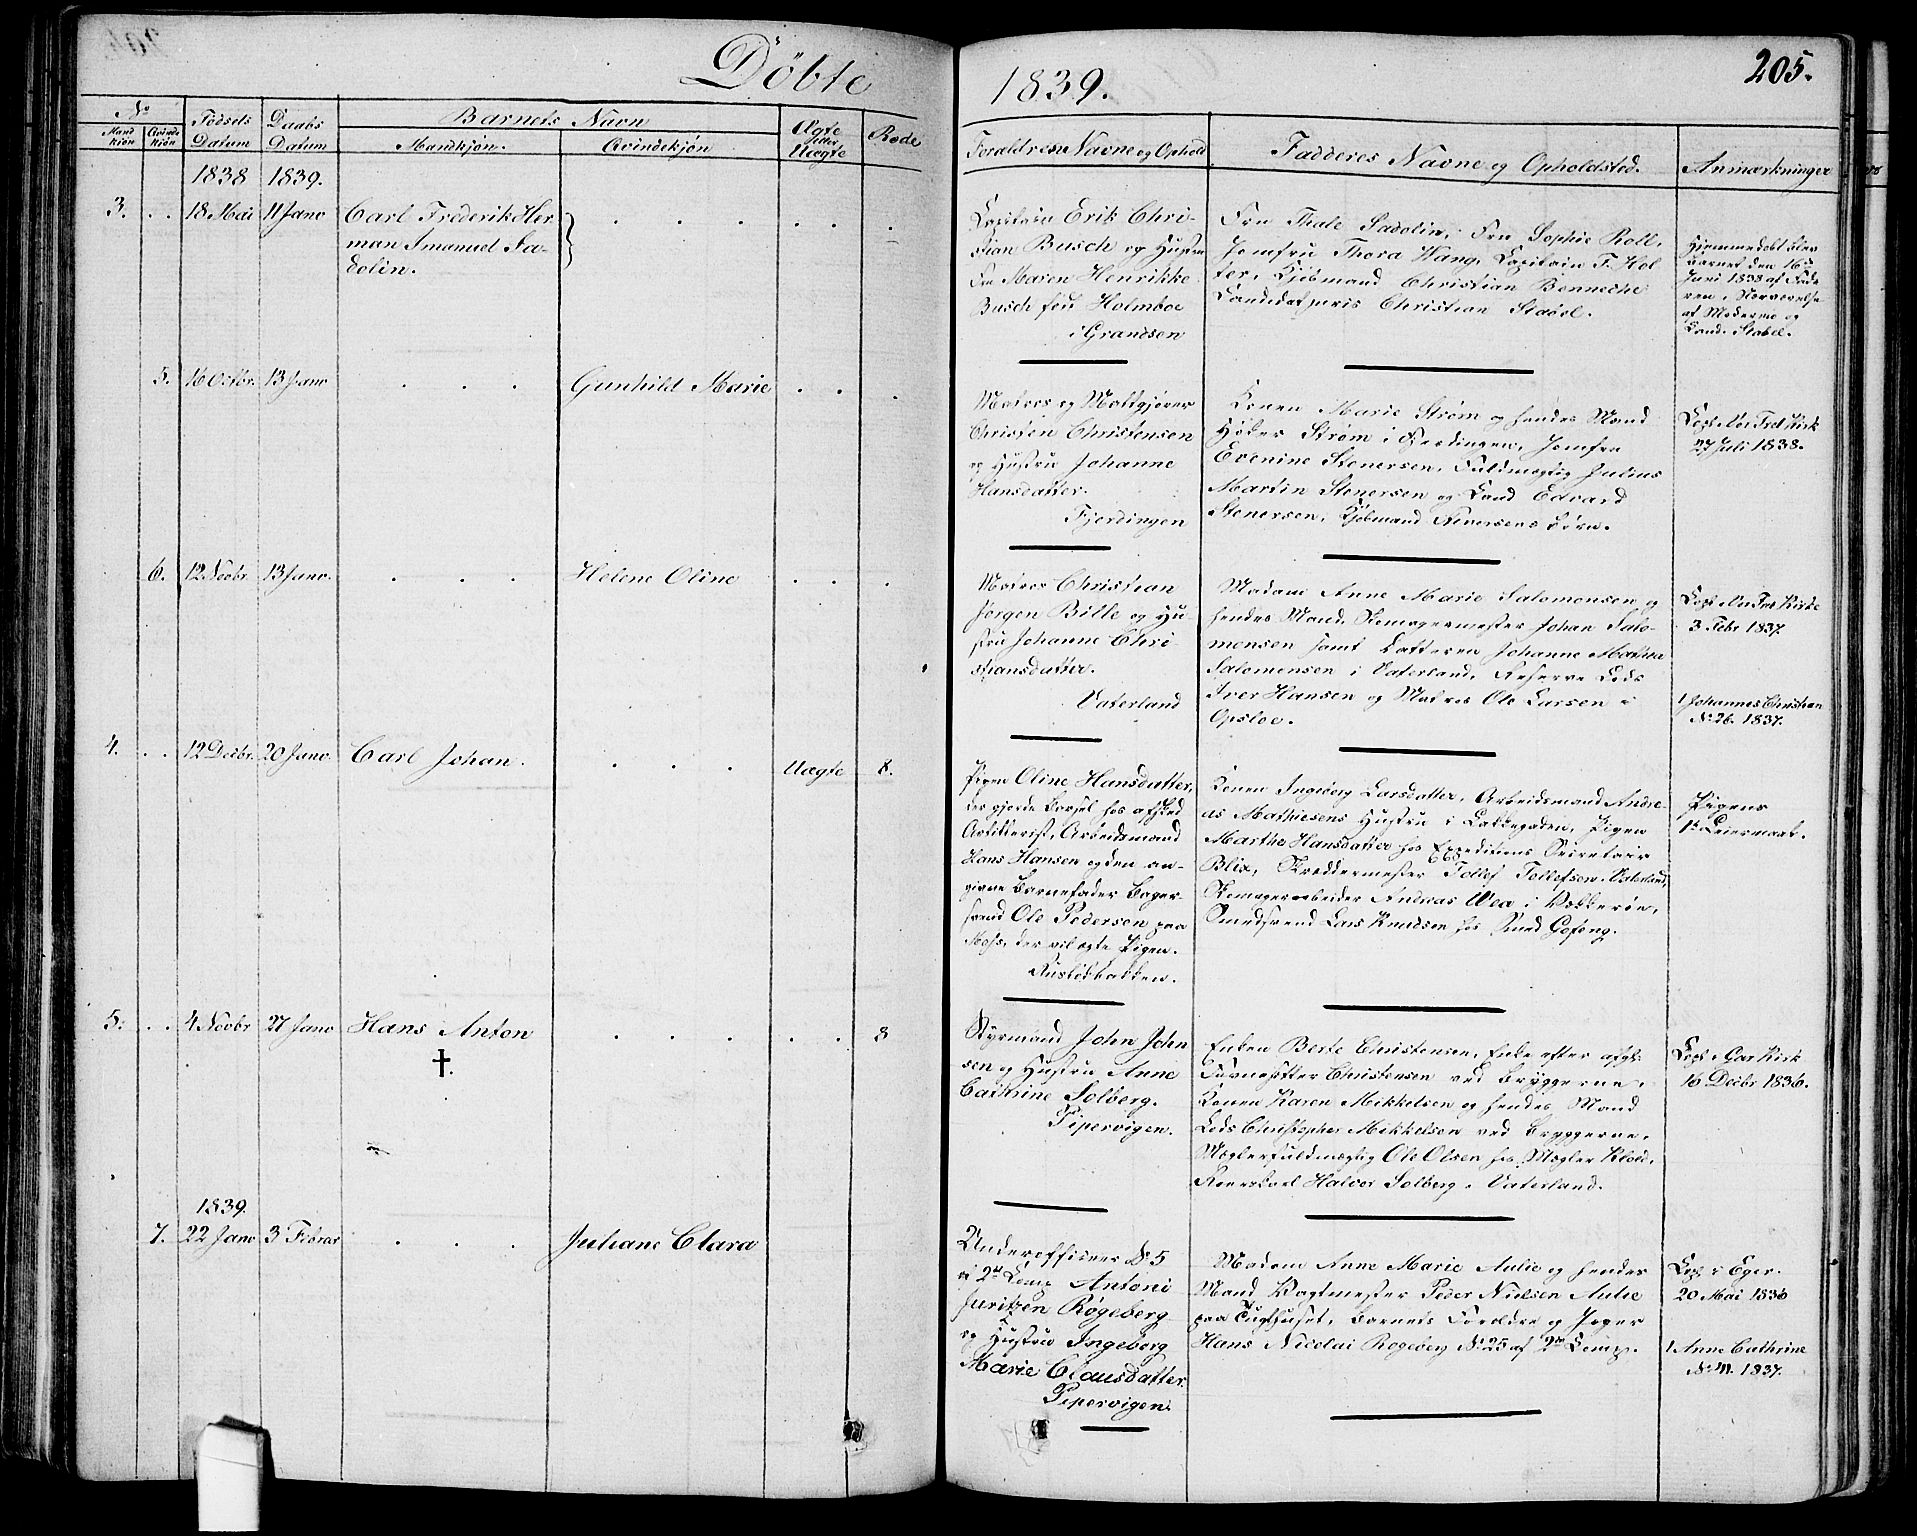 Döbte
1839.
205.
No
Mand kiön
Qvinde kiön
Fødsels Datum
Daabs Datum
Barnets Navn
Mandkjön.
Qvindekjön
Ægte eller Uægte
Rode
Forældrenes Navne og Ophold
Fadderes Navne og Opholdsted.
Anmærkninger
1838 1839.
3. 18 Mai 11 Janv Carl Frederik Her-
man Imanuel Sa-
dolin.
Capitain Erik Chri-
stian Busch og Hustru
Fru Maren Henrikke
Busch født Holmboe
i Grændsen
Fru Thale Sadolin, Fru Sophie Roll,
Jomfru Thora Wang, Capitain T. Hol-
ter, Kjøbmand Christian Benneche
Candidat juris Christian Stabel.
Hjemmedøbt blev
Barnet den 16de
Juni 1838 af Fade-
ren, i Nærværelse
af Moderen og
Cand. Stabel.
5. 16 Octbr. 13 Janv Gunhild Marie
Matros og Maltgjører
Christen Christensen
og Hustru Johanne
Hansdatter.
Fjerdingen
Konen Marie Strøm og hendes Mand
Høker Strøm i Fjerdingen, Jomfru
Evenine Stenersen, Fuldmægtig Julius
Martin Stenersen og Cand Edvard
Stenersen, Kjøbmand Stenersens Børn.
Cop. i Vor Frel Kirk
27 Juli 1838.
6. 12 Novbr. 13 Janv. Helene Oline
Matros Christian
Jørgen Bille og Hu-
stru Johanne Chri-
stiansdatter.
Vaterland
Madam Anne Marie Salomonsen og
hendes Mand, Skomagermester Johan Salo-
monsen samt Datteren Johanne Mathea
Salomonsen i Vaterland, Reserve Lods
Iver Hansen og Matros Ole Larsen i
Opsloe.
Cop. i Vor Frel Kirke
3 Febr 1837.
1 Johannes Christian
No 26. 1837.
4. 12 Decbr. 20 Janv. Carl Johan. Uægte 8.
Pigen Oline Hansdatter,
der gjorde Barsel hos afsked
Artillerist, Arbeidsmand
Hans Hansen og den an-
givne Barnefader Bager-
svend Ole Pedersen paa
Moss, der vil ægte Pigen.
Ruseløkbakken.
Konen Ingeborg Larsdatter, Arbeidsmand Andre-
as Mathiesens Hustru i Lakkegaden, Pigen
Marthe Hansdatter hos Expeditions Secretair
Blix, Skreddermester Tollef Tollefsen i Vaterland,
Skomagerarbeider Andreas Wea i Vækkerøen,
Smedsvend Lars Knudsen hos Smed Gofeng.
Pigens
1ste Leiermaal.
5. 4 Novbr 27 Janv Hans Anton 8
†.
Styrmand John John
sen og Hustru Anne
Cathrine Solberg.
Pipervigen.
Enken Berte Christensen, Enke efter afg.
Christensen ved Bryggerne,
Konen Karen Mikkelsen og hendes Mand
Lods Christopher Mikkelsen ved Bryggerne,
Mæglerfuldmægtig Ole Olsen hos Mægler
Halvor Solberg i Vaterland.
Cop. i Gar Kirk
16 Decbr 1836.
1839.
7. 22 Janv 3 Februar Juliane Clara
Underofficeer No 5
v. 2den Comp Antoni
Juritzen Røgeberg
og Hustru Ingeborg
Marie Clausdatter.
Pipervigen.
Madam Anne Marie Aulie og hendes
Mand Vagtmester Peder Nielsen Aulie
paa Tugthuset, Barnets Forældre og Jæger
Hans Nicolai Rogeberg No 25 af 2den Comp.
Cop. i Eger.
20 Mai 1836
1 Anne Cathrine
1837.